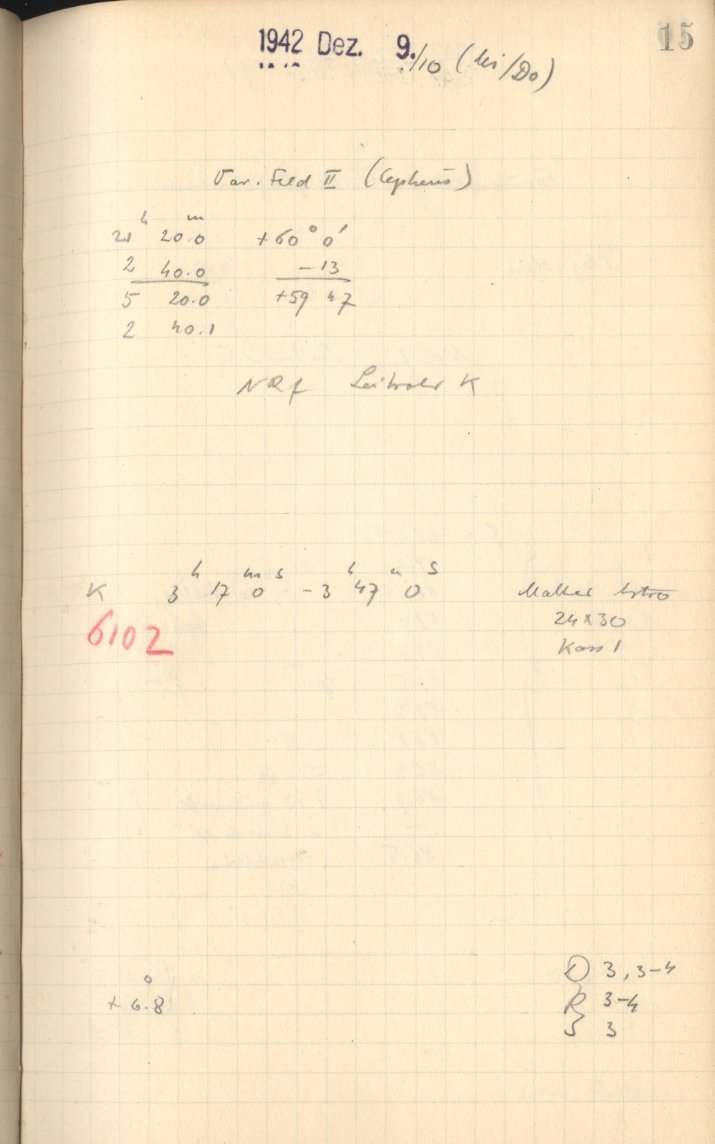 15
1942 Dez. 9./10 (Mi/Do)
Var. Feld II (Cepheus)
h m
21 20.0 +60° 0'
2 40.0 -13
5 20.0 +59 47
2 40.1
NRf Leitrohr K
h m s h m s
K 3 17 0 - 3 47 0 Astro
6102 24x30
Kass 1
+ 6.8°
D 3, 3-4
R 3-4
S 3